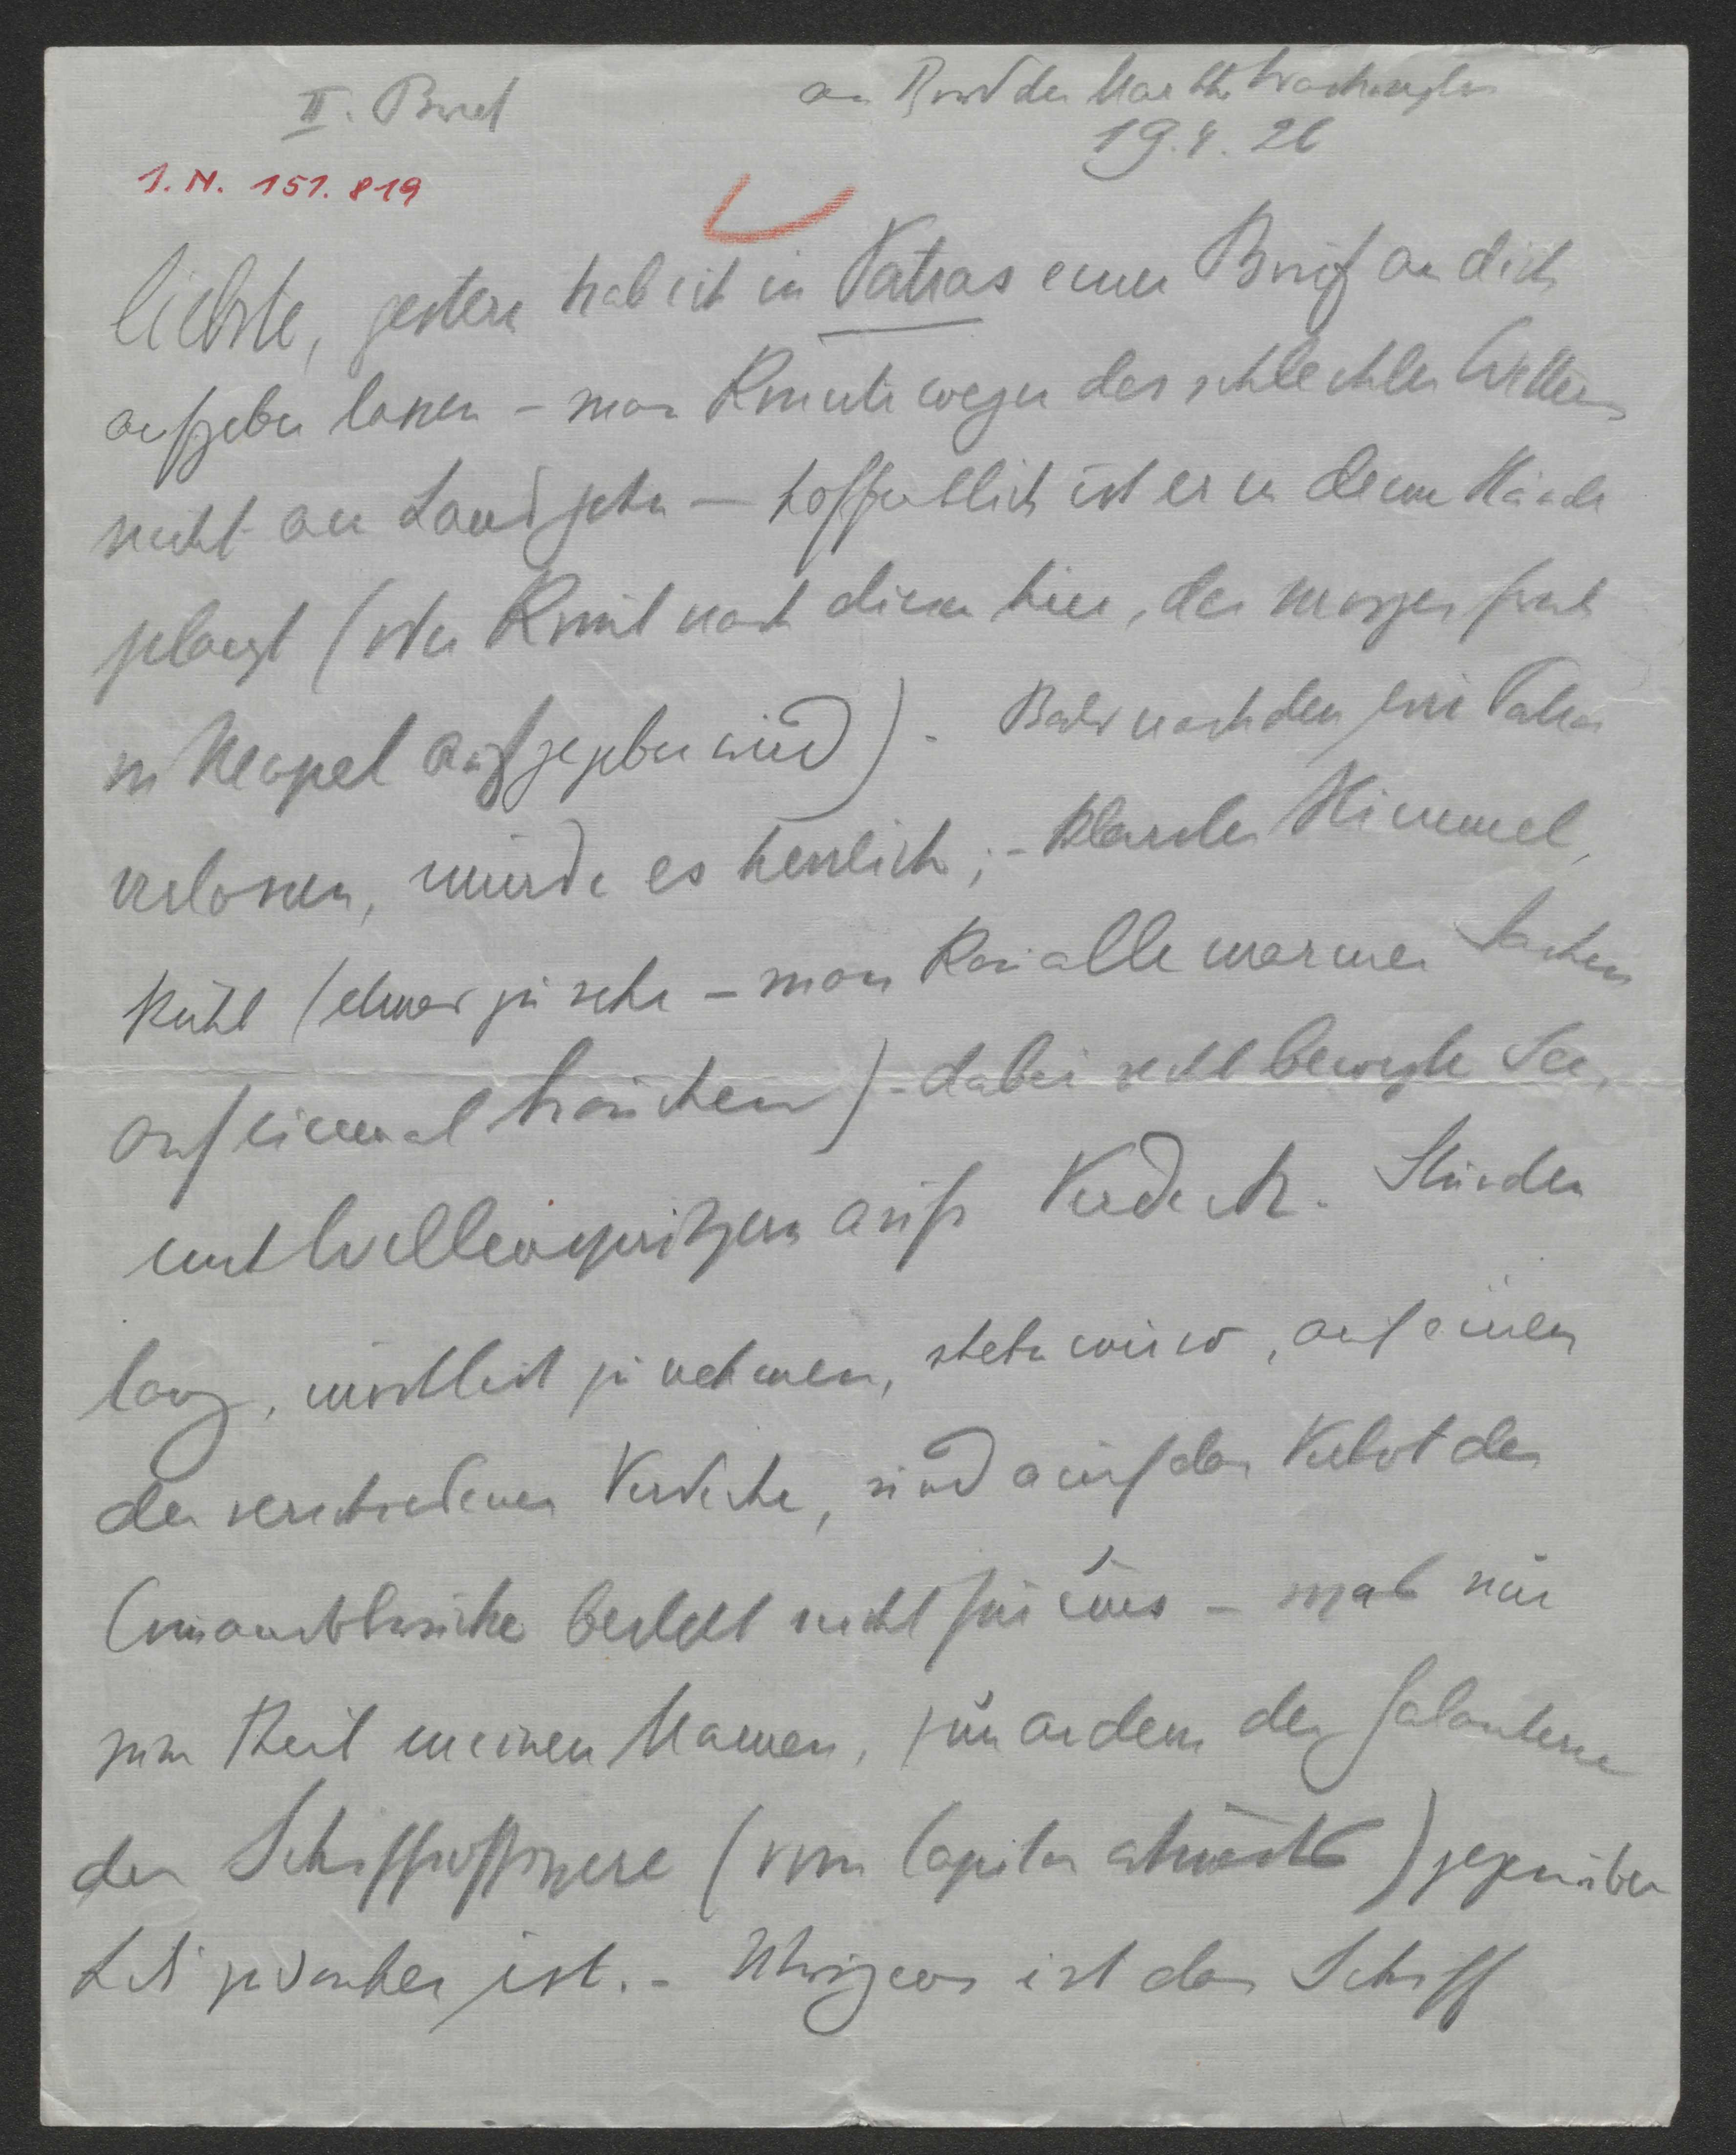 II. Brief
an Bord der Martha Washington
19. 4. 26
I. N. 151.819
liebste, gestern hab ich in Patras einen Brief an dich
aufgeben lassen – man konnte wegen des schlechten Wetters
nicht an Land gehn – hoffentlich ist er in deine Hände
gelangt (oder kommt nach diesem hier, der morgen früh
in Neapel aufgegeben wird). – Bald nachdem wir Patras
verlassen, wurde es herrlich; – blauster Himmel,
kühl (etwas zu sehr – man kann alle warmen Sachen
auf einmal brauchen) – dabei recht bewegte See,
und Wellenspritzern aufs Verdeck. Stunden
lang, wörtlich zu nehmen, stehn wir so, auf einem
der verschiedenen Verdecke, sind auch das Verbot der
Commandobrücke besteht nicht für uns – was nur
zum Theil meinem Namen, zum andern der Galanterie
der Schiffsoffiziere (vom Capitän abwärts) gegenüber
Lili zu danken ist. – Übrigens ist das Schiff